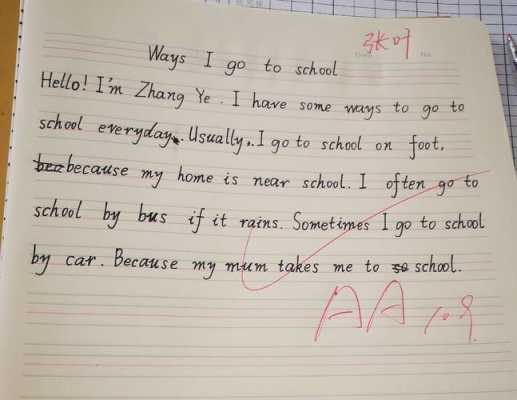 张叶
Ways I go to school
Hello! I'm Zhang Ye. I have some ways to go to
school everyday. Usually, I go to school on foot,
because my home is near school. I often go to
school by bus if it rains. Sometimes I go to school
by car. Because my mum takes me to school.
AA